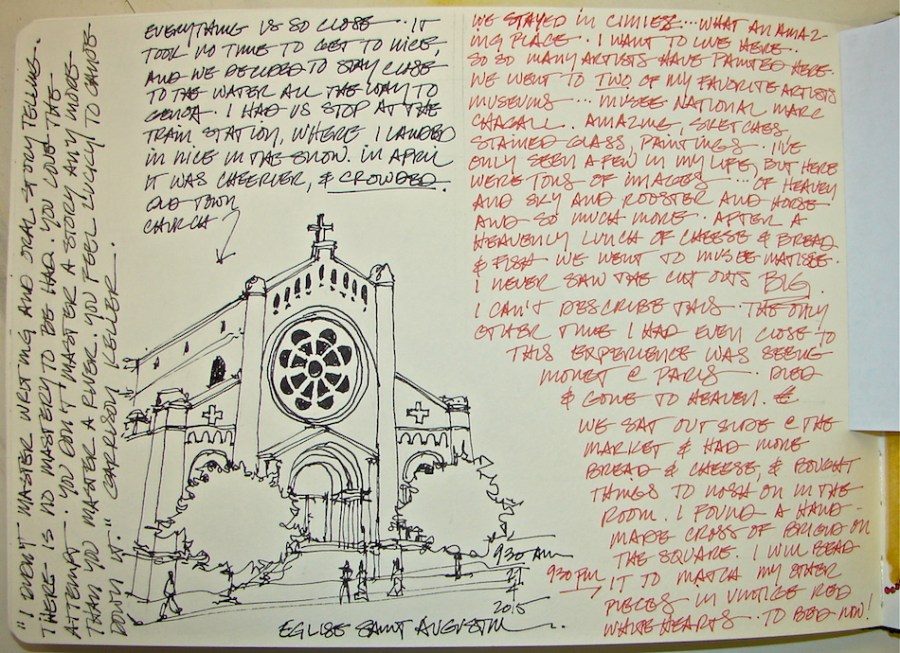 "I DIDN'T MASTER WRITING AND ORAL STORY TELLING.
THERE IS NO MASTERY TO BE HAD. YOU LOVE THE
ATTEMPT. YOU DON'T MASTER A STORY ANY MORE
THAN YOU MASTER A RIVER. YOU FEEL LUCKY TO CANOE
DOWN IT." GARRISON KEILER.
EVERYTHING IS SO CLOSE... IT
TOOK NO TIME TO GET TO NICE,
AND WE DECIDED TO STAY CLOSE
TO THE WATER ALL THE WAY TO
GENOA. I HAD US STOP AT THE
TRAIN STATION, WHERE I LANDED
IN NICE IN THE SNOW. IN APRIL
IT WAS CHEERIER, & CROWDED.
OLD TOWN
CHURCH
9:30 AM
21
4
2015
EGLISE SAINT AUGUSTIN
WE STAYED IN CIMIEZ... WHAT AN AMAZ-
ING PLACE. I WANT TO LIVE HERE.
SO SO MANY ARTISTS HAVE PAINTED HERE.
WE WENT TO TWO OF MY FAVORITE ARTISTS
MUSEUMS... MUSEE NATIONAL MARC
CHAGALL. AMAZING, SKETCHES,
STAINED GLASS, PAINTINGS. I'VE
ONLY SEEN A FEW IN MY LIFE, BUT HERE
WERE TONS OF IMAGES... OF HEAVEN
AND SKY AND ROOSTER AND HORSE
AND SO MUCH MORE. AFTER A
HEAVENLY LUNCH OF CHEESE & BREAD
& FISH WE WENT TO MUSEE MATISSE.
I NEVER SAW THE CUT OUTS BIG.
I CAN'T DESCRIBE THIS... THE ONLY
OTHER TIME I HAD EVEN CLOSE TO
THIS EXPERIENCE WAS SEEING
MONET @ PARIS... DIED
& GONE TO HEAVEN.
WE SAT OUT SIDE @ THE
MARKET & HAD MORE
BREAD & CHEESE, & BOUGHT
THINGS TO NOSH ON IN THE
ROOM. I FOUND A HAND-
MADE CROSS OF ON
THE SQUARE. I WILL BEAD
IT TO MATCH MY OTHER
PIECES IN VINTAGE RED
WHITE HEARTS... TO BED NOW!
9:30 PM